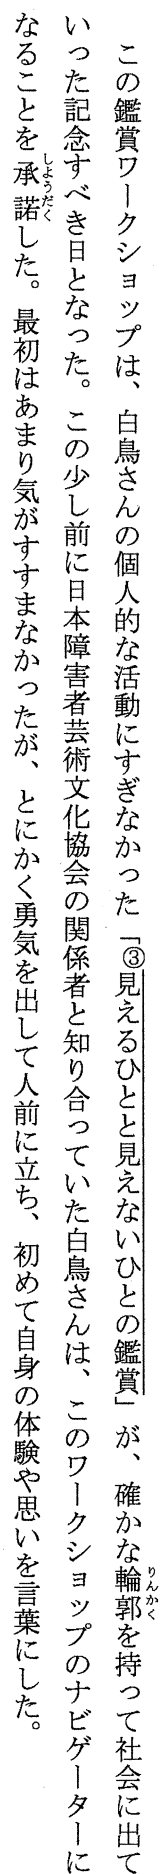 この鑑賞ワークショップは、白鳥さんの個人的な活動にすぎなかった「③見えるひとと見えないひとの鑑賞」が、確かな輪郭を持って社会に出て
いった記念すべき日となった。この少し前に日本障害者芸術文化協会の関係者と知り合っていた白鳥さんは、このワークショップのナビゲーターに
なることを承諾した。最初はあまり気がすすまなかったが、とにかく勇気を出して人前に立ち、初めて自身の体験や思いを言葉にした。